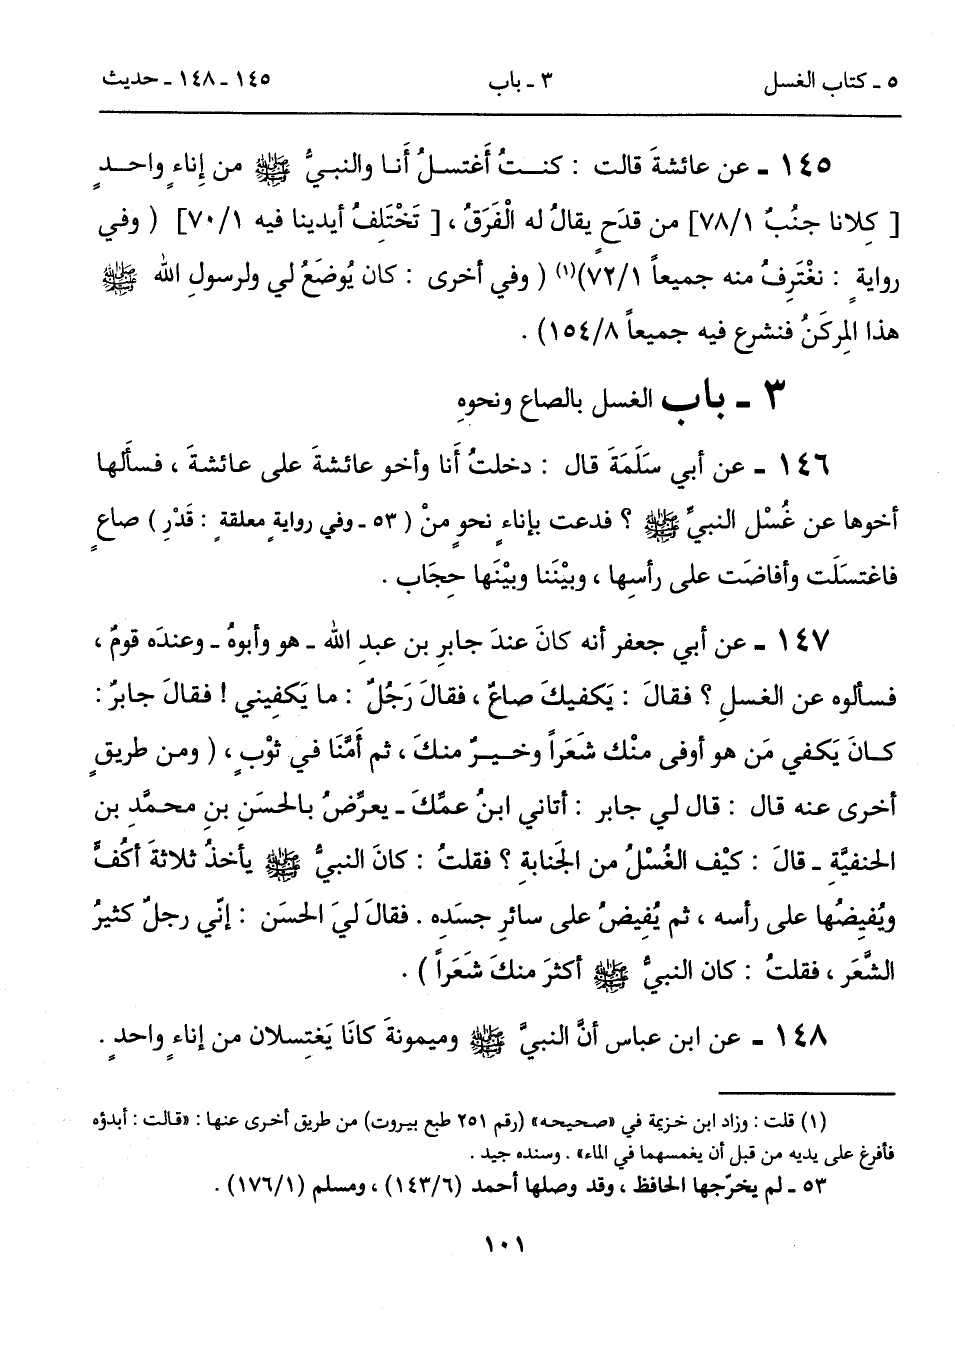 ٥ ـ كتاب الغسل ٣ ـ باب ١٤٥ ـ ١٤٨ ـ حديث
١٤٥ ـ عن عائشةَ قالت : كنــتُ أَغتسـلُ أَنـا والنبـيُّ ﷺ من إِناءٍ واحــدٍ
[ كِلانا جنُبٌ ٧٨/١] من قدَحٍ يقالُ له الْفَرَقُ ، [ تَخْتَلِفُ أيدينا فيه ٧٠/١] ( وفي
روايةٍ : نغْتَرِفُ منه جميعاً ٧٢/١)(١) ( وفي أخرى : كان يُوضَعُ لي ولرسولِ الله ﷺ
هذا المِركَنُ فنشرع فيه جميعاً ١٥٤/٨) .
٣ ـ باب الغسل بالصاع ونحوهِ
١٤٦ ـ عن أبي سَلَمَةَ قال : دخلتُ أَنا وأخو عائشةَ على عائشةَ ، فسأَلها
أخوها عن غُسْلِ النبيِّ ﷺ ؟ فدعت بإناءٍ نحوٍ منْ ( ٥٣ ـ وفي روايةٍ معلقةٍ : قَدْرِ ) صاعٍ
فاغتسَلَت وأفاضَت على رأسِها ، وبيْنَنا وبيْنَها حِجَاب .
١٤٧ ـ عن أبي جعفر أنه كانَ عندَ جابرِ بن عبدِ الله ـ هو وأبوهُ ـ وعندَه قومٌ ،
فسألوه عن الغسلِ ؟ فقالَ : يَكفيكَ صاعٌ ، فقالَ رَجُلٌ : ما يَكفِيني ! فقالَ جابرٌ :
كـانَ يَكفي مَن هو أوفى منْك شَعَراً وخـيـرٌ منكَ ، ثم أَمَّنَا في ثوْبٍ ، ( ومن طريقٍ
أخرى عنه قال : قال لي جابر : أتاني ابنُ عمِّكَ ـ يعرِّضُ بالحسَنِ بنِ محمَّدِ بن
الحنفيَّةِ ـ قالَ : كيْف الغُسْلُ من الجَنابةِ ؟ فقلتُ : كانَ النبيُّ ﷺ يأخذُ ثلاثةَ أكُفٍّ
ويُفيضُها على رأسه ، ثم يُفيضُ على سائرِ جسَدِه . فقالَ ليَ الحسَن : إنّي رجلٌ كثيرُ
الشَّعَرِ ، فقلتُ : كان النبيُّ ﷺ أكثرَ منكَ شَعَراً ) .
١٤٨ ـ عن ابن عباس أنَّ النبيَّ ﷺ وميمونةَ كانَا يَغتِسلان من إناءٍ واحدٍ .
(١) قلت : وزاد ابن خزيمة في «صحيحه» (رقم ٢٥١ طبع بيروت) من طريق أخرى عنها : «قالت : أبدؤه
فأفرغ على يديه من قبل أن يغمسهما في الماء» . وسنده جيد .
٥٣ ـ لم يخرّجها الحافظ ، وقد وصلها أحمد (١٤٣/٦) ، ومسلم (١٧٦/١) .
١٠١